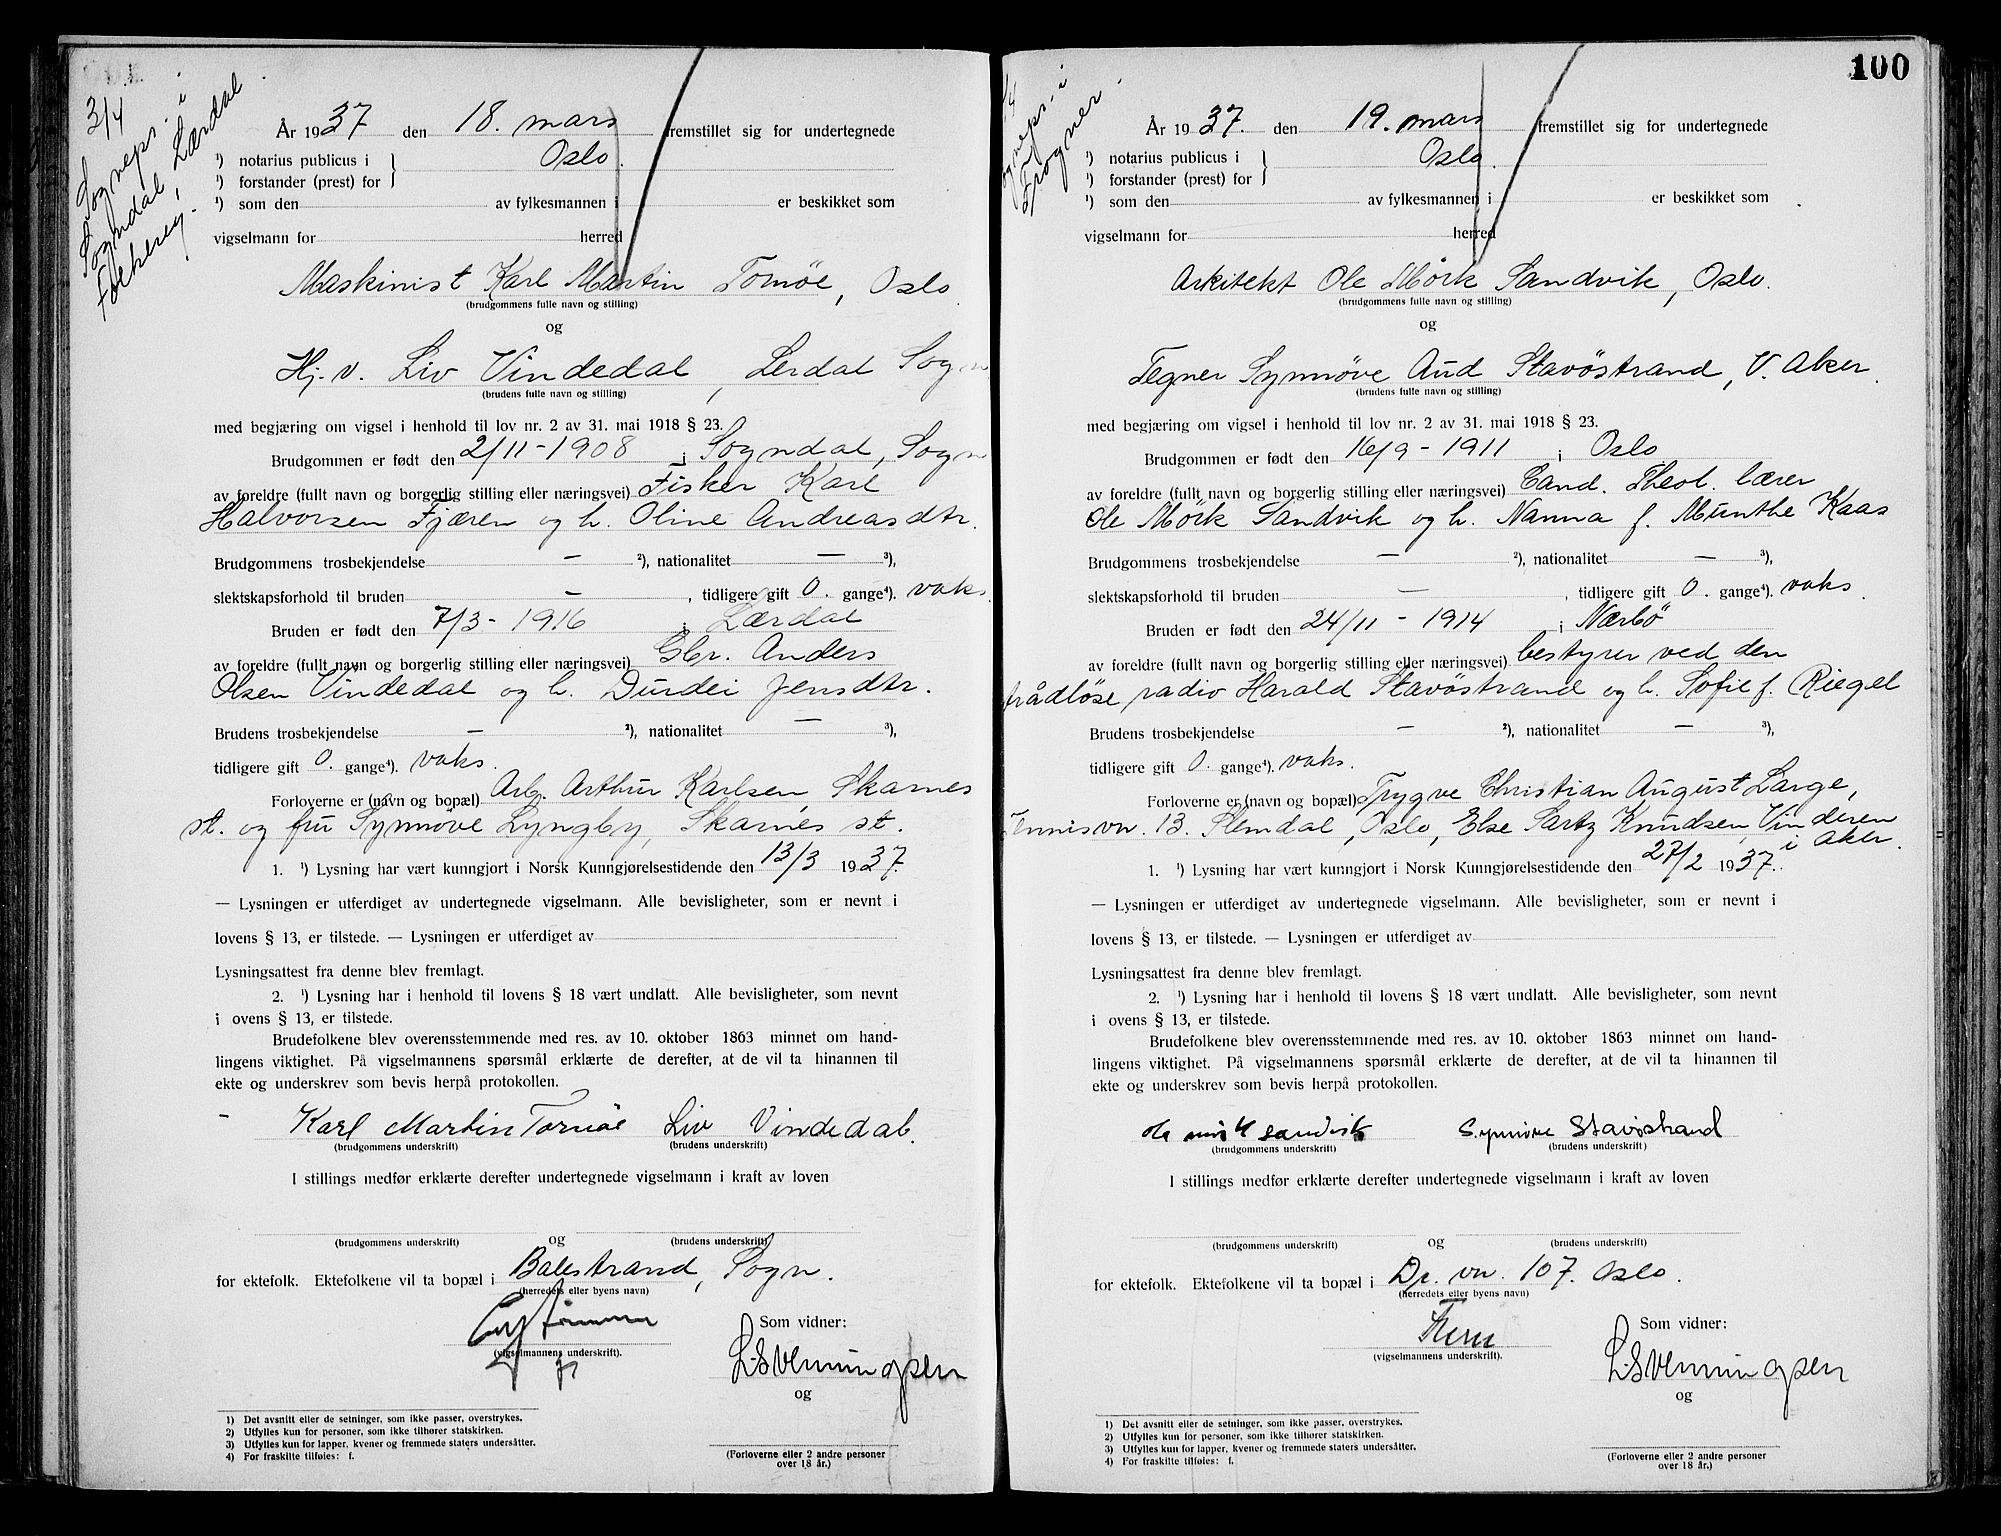 3/4
Sogneps. i
Sogndal, Lærdal
Folkereg.
År 1937 den 18. mars fremstillet sig for undertegnede
¹) notarius publicus i Oslo.
¹) forstander (prest) for
¹) som den av fylkesmannen i er beskikket som
vigselmann for herred
Maskinist Karl Martin Tornöe, Oslo
(brudgommens fulle navn og stilling)
og
Hj.v. Liv Vindedal, Lerdal Sogn
(brudens fulle navn og stilling)
med begjæring om vigsel i henhold til lov nr. 2 av 31. mai 1918 § 23.
Brudgommen er født den 2/11-1908 i Sogndal, Sogn
av foreldre (fullt navn og borgerlig stilling eller næringsvei) Fisker Karl
Halvorsen Fjæren og h. Oline Andreasdtr.
Brudgommens trosbekjendelse — ²), nationalitet — ³),
slektskapsforhold til bruden — , tidligere gift 0. gange⁴). vaks.
Bruden er født den 7/3 - 1916 i Lærdal
av foreldre (fullt navn og borgerlig stilling eller næringsvei) Gbr. Anders
Olsen Vindedal og h. Durdei Jensdtr.
Brudens trosbekjendelse — ²), nationalitet — ³),
tidligere gift 0. gange⁴). vaks.
Forloverne er (navn og bopæl) Arb. Arthur Karlsen, Skarnes
st. og fru Synnøve Lyngby, Skarnes st.
1. ¹) Lysning har vært kunngjort i Norsk Kunngjørelsestidende den 13/3 1937.
— Lysningen er utferdiget av undertegnede vigselmann. Alle bevisligheter, som er nevnt i
lovens § 13, er tilstede. — Lysningen er utferdiget av
Lysningsattest fra denne blev fremlagt.
2. ¹) Lysning har i henhold til lovens § 18 vært undlatt. Alle bevisligheter, som nevnt
i ovens § 13, er tilstede.
Brudefolkene blev overensstemmende med res. av 10. oktober 1863 minnet om hand-
lingens viktighet. På vigselmannens spørsmål erklærte de derefter, at de vil ta hinannen til
ekte og underskrev som bevis herpå protokollen.
Karl Martin Tornöe Liv Vindedal.
(brudgommens underskrift) (brudens underskrift)
I stillings medfør erklærte derefter undertegnede vigselmann i kraft av loven
og
(brudgommens underskrift) (brudens underskrift)
for ektefolk. Ektefolkene vil ta bopæl i Balestrand, Sogn.
(herredets eller byens navn)
Som vidner:
(vigselmannens underskrift).
L. S. Henningsen
og
1) Det avsnitt eller de setninger, som ikke passer, overstrykes.
2) Utfylles kun for personer, som ikke tilhører statskirken.
3) Utfylles kun for lapper, kvener og fremmede staters undersåtter.
4) For fraskilte tilføies: f.
(Forloverne eller 2 andre personer
over 18 år.)
100
Frogner
År 1937. den 19. mars fremstillet sig for undertegnede
¹) notarius publicus i Oslo.
¹) forstander (prest) for
¹) som den av fylkesmannen i er beskikket som
vigselmann for herred
Arkitekt Ole Mörk Sandvik, Oslo.
(brudgommens fulle navn og stilling)
og
Tegner Synnöve Aud Stavöstrand, V. Aker.
(brudens fulle navn og stilling)
med begjæring om vigsel i henhold til lov nr. 2 av 31. mai 1918 § 23.
Brudgommen er født den 16/9 - 1911 i Oslo
av foreldre (fullt navn og borgerlig stilling eller næringsvei) Cand. Theol. lærer
Ole Mörk Sandvik og h. Nanna f. Munthe Kaas
Brudgommens trosbekjendelse — ²), nationalitet — ³),
slektskapsforhold til bruden — , tidligere gift 0. gange⁴). vaks.
Bruden er født den 24/11 - 1914 i Nærbö
av foreldre (fullt navn og borgerlig stilling eller næringsvei) bestyrer ved den
trådlöse radio Harald Stavöstrand og h. Sofie f. Riegel
Brudens trosbekjendelse — ²), nationalitet — ³),
tidligere gift 0. gange⁴). vaks.
Forloverne er (navn og bopæl) Trygve Christian August Lange,
Tennisvn. 13. Slemdal, Oslo, Else Sartz Knudsen, Vinderen
i Aker.
1. ¹) Lysning har vært kunngjort i Norsk Kunngjørelsestidende den 27/2 1937.
— Lysningen er utferdiget av undertegnede vigselmann. Alle bevisligheter, som er nevnt i
lovens § 13, er tilstede. — Lysningen er utferdiget av
Lysningsattest fra denne blev fremlagt.
2. ¹) Lysning har i henhold til lovens § 18 vært undlatt. Alle bevisligheter, som nevnt
i ovens § 13, er tilstede.
Brudefolkene blev overensstemmende med res. av 10. oktober 1863 minnet om hand-
lingens viktighet. På vigselmannens spørsmål erklærte de derefter, at de vil ta hinannen til
ekte og underskrev som bevis herpå protokollen.
Ole Mörk Sandvik Synnöve Stavöstrand
(brudgommens underskrift) (brudens underskrift)
I stillings medfør erklærte derefter undertegnede vigselmann i kraft av loven
og
(brudgommens underskrift) (brudens underskrift)
for ektefolk. Ektefolkene vil ta bopæl i Dr. vn. 107. Oslo.
(herredets eller byens navn)
Som vidner:
(vigselmannens underskrift).
L. S. Henningsen
og
1) Det avsnitt eller de setninger, som ikke passer, overstrykes.
2) Utfylles kun for personer, som ikke tilhører statskirken.
3) Utfylles kun for lapper, kvener og fremmede staters undersåtter.
4) For fraskilte tilføies: f.
(Forloverne eller 2 andre personer
over 18 år.)